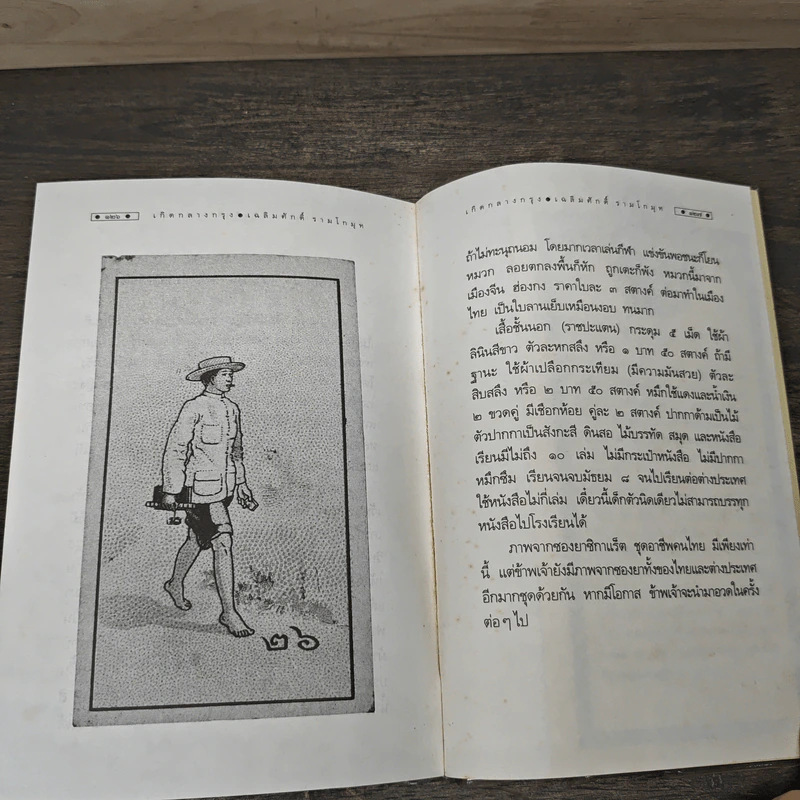 ๑๒๖ เกิดกลางกรุง●เฉลิมศักดิ์ รามโกมุท
๒๖
เกิดกลางกรุง●เฉลิมศักดิ์ รามโกมุท ๑๒๗
ถ้าไม่ทะนุถนอม โดยมากเวลาเล่นกีฬา แข่งขันพอชนะก็โยน
หมวก ลอยตกลงพื้นก็หัก ถูกเตะก็พัง หมวกนี้มาจาก
เมืองจีน ฮ่องกง ราคาใบละ ๓ สตางค์ ต่อมาทำในเมือง
ไทย เป็นใบลานเย็บเหมือนงอบ ทนมาก
เสื้อชั้นนอก (ราชปะแตน) กระดุม ๕ เม็ด ใช้ผ้า
ลินินสีขาว ตัวละหกสลึง หรือ ๑ บาท ๕๐ สตางค์ ถ้ามี
ฐานะ ใช้ผ้าเปลือกกระเทียม (มีความมันสวย) ตัวละ
สิบสลึง หรือ ๒ บาท ๕๐ สตางค์ หมึกใช้แดงและน้ำเงิน
๒ ขวดคู่ มีเชือกห้อย คู่ละ ๒ สตางค์ ปากกาด้ามเป็นไม้
ตัวปากกาเป็นสังกะสี ดินสอ ไม้บรรทัด สมุด และหนังสือ
เรียนมีไม่ถึง ๑๐ เล่ม ไม่มีกระเป๋าหนังสือ ไม่มีปากกา
หมึกซึม เรียนจนจบมัธยม ๘ จนไปเรียนต่อต่างประเทศ
ใช้หนังสือไม่กี่เล่ม เดี๋ยวนี้เด็กตัวนิดเดียวไม่สามารถบรรทุก
หนังสือไปโรงเรียนได้
ภาพจากซองยาซิกาแร็ต ชุดอาชีพคนไทย มีเพียงเท่า
นี้ แต่ข้าพเจ้ายังมีภาพจากซองยาทั้งของไทยและต่างประเทศ
อีกมากชุดด้วยกัน หากมีโอกาส ข้าพเจ้าจะนำมาอวดในครั้ง
ต่อๆ ไป